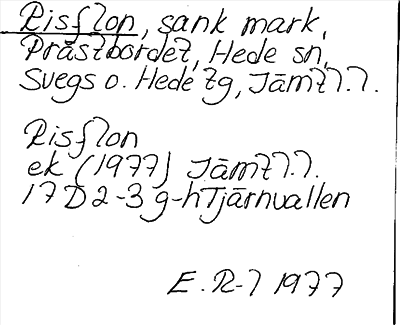 Risflon, sank mark,
Prästbordet, Hede sn,
Svegs o. Hede tg, Jämtl.l.
Risflon
ek (1977) Jämtl.l.
17 D 2-3 g-h Tjärnvallen
E. R-l 1977